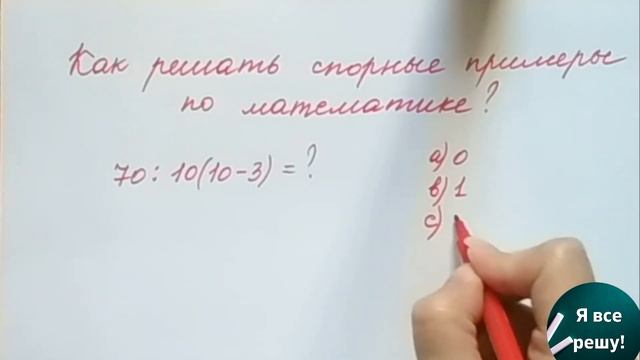 Как решать спорные примеры
по математике?
70 : 10(10-3) = ?
а) 0
в) 1
с)
Я все
решу!